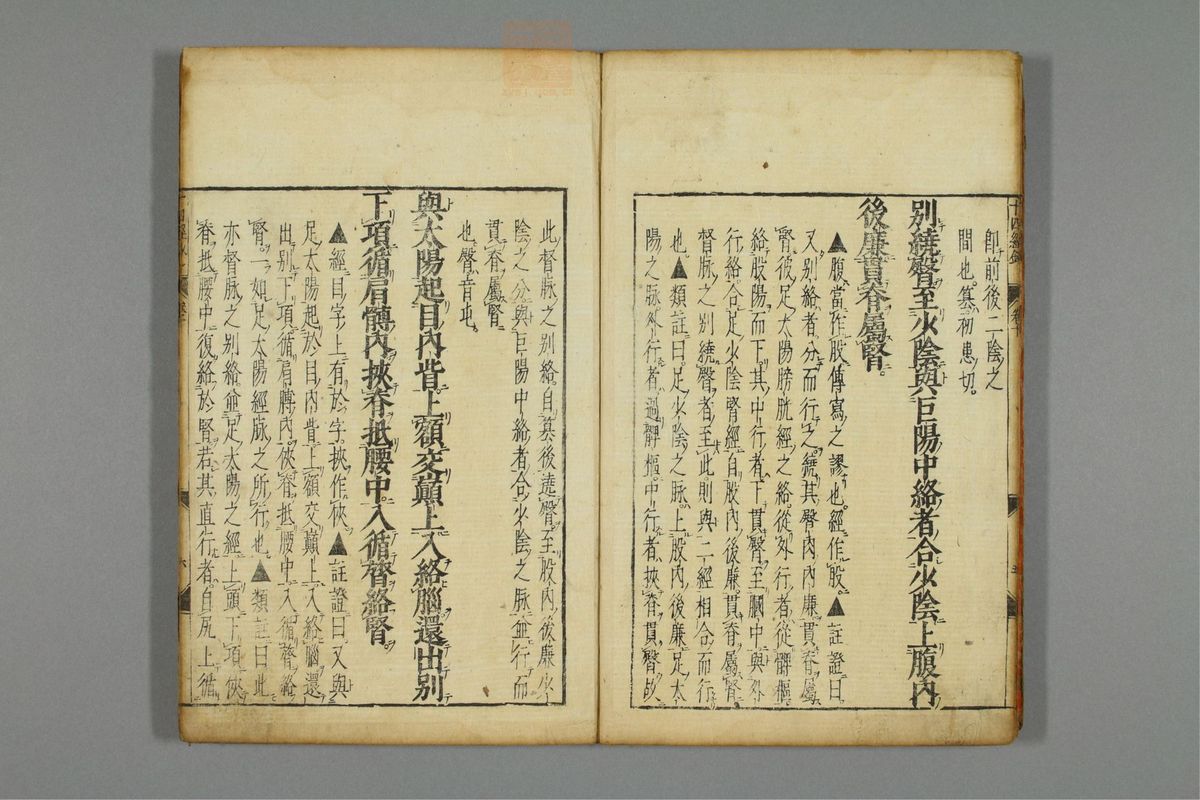 即前後二陰之
間也。篡初患切。
別繞臀至少陰與巨陽中絡者合少陰上腹內
後廉貫脊屬腎。
▲腹當作股傳寫之謬也經作股。▲註證曰
又別絡者分而行之繞其臀內內廉貫脊屬
腎彼足太陽膀胱經之絡從外行者從髀樞
絡股陽而下其中行者下貫臀至膕中與外
行絡合足少陰腎經自股內後廉貫脊屬腎
督脉之別繞臀者至此則與二經相合而行
也▲類註曰足少陰之脉上股內後廉足太
陽之脉外行者過髀樞中行者挾脊貫臀故
此督脉之別絡自篡後遶臀至股內後廉少
陰之分與巨陽中絡者合少陰之脉並行而
貫脊屬腎
也臀音屯。
與太陽起目內眥上額交巔上入絡腦還出別
下項循肩髆內挾脊抵腰中入循膂絡腎。
▲經目字上有於字挾作俠▲註證曰又與
足太陽起於目內眥上額交巔上入絡腦還
出別下項循肩髆內俠脊抵腰中入循膂絡
腎一如足太陽經脉之所行也▲類註曰此
亦督脉之別絡並足太陽之經上頭下項俠
脊抵腰中復絡於腎若其直行者自尻上循